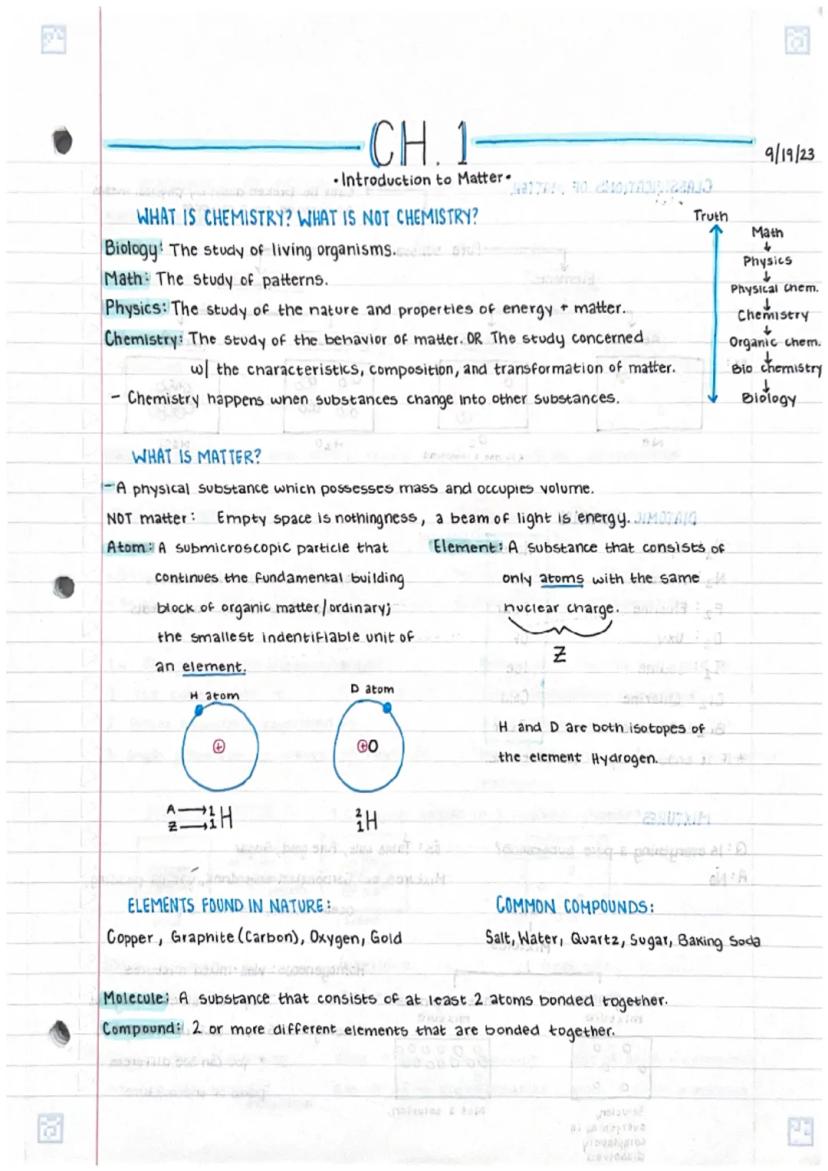 CH. 1
9/19/23
• Introduction to Matter •
WHAT IS CHEMISTRY? WHAT IS NOT CHEMISTRY?
Biology: The study of living organisms.
Math: The study of patterns.
Physics: The study of the nature and properties of energy + matter.
Chemistry: The study of the behavior of matter. OR The study concerned
w/ the characteristics, composition, and transformation of matter.
- Chemistry happens when substances change into other substances.
Truth
Math
↓
Physics
↓
Physical chem.
↓
Chemistry
↓
Organic chem.
↓
Bio chemistry
↓
Biology
WHAT IS MATTER?
- A physical substance which possesses mass and occupies volume.
NOT matter: Empty space is nothingness, a beam of light is energy.
Atom: A submicroscopic particle that
continues the fundamental building
block of organic matter/ordinary;
the smallest indentifiable unit of
an element.
Element: A substance that consists of
only atoms with the same
nuclear charge.
Z
H atom
D atom
+
+O
A → 1
Z → 1 H
2
1 H
H and D are both isotopes of
the element Hydrogen.
ELEMENTS FOUND IN NATURE:
Copper, Graphite (Carbon), Oxygen, Gold
COMMON COMPOUNDS:
Salt, Water, Quartz, Sugar, Baking Soda
Molecule: A substance that consists of at least 2 atoms bonded together.
Compound: 2 or more different elements that are bonded together.